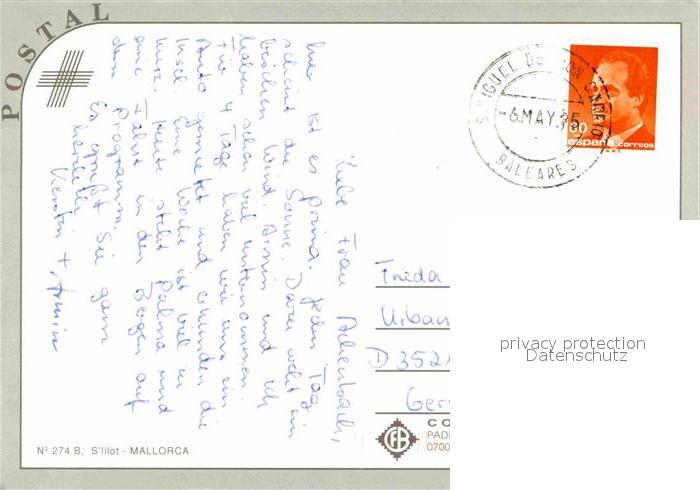 POSTAL
Liebe Frau Achenbach,
hier ist es prima. Jeden Tag
scheint die Sonne. Dazu weht ein
bißchen Wind. Armin und ich
haben schon viel unternommen.
Für 4 Tage haben wir uns ein
Auto gemietet und erkunden die
Insel. Eine Woche ist viel zu
kurz. Heute steht Palma und
eine Fahrt in den Bergen auf
dem Programm.
Es grüßt Sie ganz
herzlich
Kerstin + Armin
S. MIGUEL DE SON CARRIO
-6.MAY.95
BALEARES
60
españa correos
Frieda
Urban
D 3521
Ger
privacy protection
Datenschutz
CO
PAD
0700
Nº 274 B, S'Illot - MALLORCA